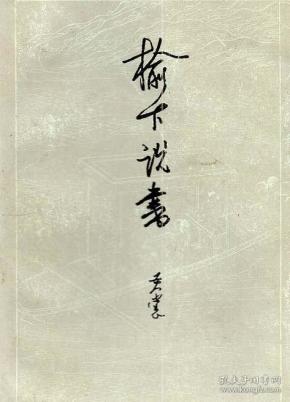 榆下说书
黄裳
孔夫子旧书网